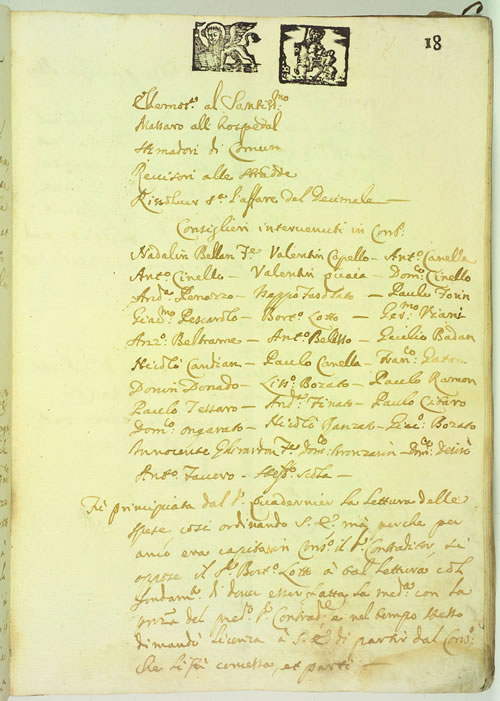 18
Elemos.ro al Santiss.mo
Massaro all hospedal
Stimadori di Comun
Revisori alle Stradde
Rissolver s.a l'affare del Decimale —
Consiglieri intervenuti in Cons.o
Nadalin Bellan — Valentin Capello — Ant.o Canella
Ant.o Cinello — Valentin — Dom.o Cinello
And.a — Fasolato — Paulo Forin
Giac.mo Pescarolo — Bort.o Lotto — Ger.mo Viani
Anz.o Beltrame — Ant.o — Badan
Nicolò Candian — Paulo Canella — Fran.co
Donin Donado — Liss.o Bozato — Paulo Ramon
Paulo Tessaro — And.a Finato — Paulo
Dom.co ongarato — Nicolò Panzato — Giac.o Bozato
Innocente Ghirardon — Dom.co Bronzarin — Dom.co
Ant.o Favero — Stef.o Scola —
Fù principiata dal S.r Quadernier la Lettura delle
spese così ordinando S. E. mà perche per
anco era capitato in Cons.o il S.r Contraditor, si
oppose il S.r Bort.o Lotto à tal Lettura col
fondam.to di dover esser fatta la med.a con la
prnza del med.o S.r Contrad.r e nel tempo stesso
dimandò Licenza à S. E. di partir dal Cons.o
che li fù concessa, et partì —